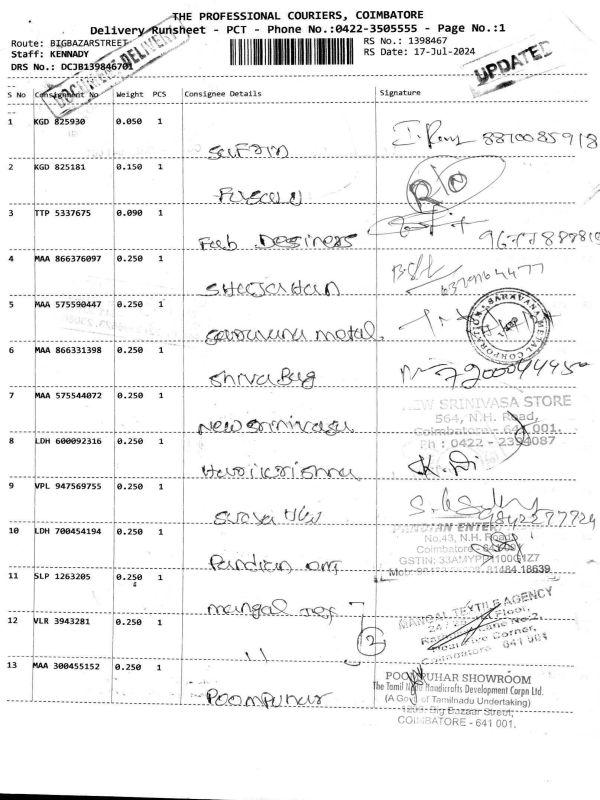 THE PROFESSIONAL COURIERS, COIMBATORE
Delivery Runsheet - PCT - Phone No.:0422-3505555 - Page No.:1
Route: BIGBAZARSTREET
RS No.: 1398467
Staff: KENNADY
RS Date: 17-Jul-2024
DRS No.: DCJB139846701
DOCUMENT DELIVERY
UPDATED
S No Consignment No Weight PCS Consignee Details Signature
1 KGD 825930 0.050 1
8870085918
2 KGD 825181 0.150 1
3 TTP 5337675 0.090 1
Fab Dessiness
4 MAA 866376097 0.250 1
Shajahan
5 MAA 575590447 0.250 1
Saravana metal
SARAVANA METAL CORPORATION
6 MAA 866331398 0.250 1
Shiva Bag
7 MAA 575544072 0.250 1
New Srinivasa
NEW SRINIVASA STORE
564, N.H. Road,
Coimbatore - 641 001.
Ph : 0422 - 2394087
8 LDH 600092316 0.250 1
Harikrishna
9 VPL 947569755 0.250 1
9842277724
10 LDH 700454194 0.250 1
Pandian Ent
PANDIAN ENTER
No.43, N.H. Road
Coimbatore
11 SLP 1263205 0.250 1
Mangal Tex
12 VLR 3943281 0.250 1
"
2
MANGAL TEXTILE AGENCY
Coimbatore 641 001
13 MAA 300455152 0.250 1
Poompuhar
POOMPUHAR SHOWROOM
The Tamil Nadu Handicrafts Development Corpn Ltd.
(A Govt of Tamilnadu Undertaking)
Big Bazaar Street,
COIMBATORE - 641 001.